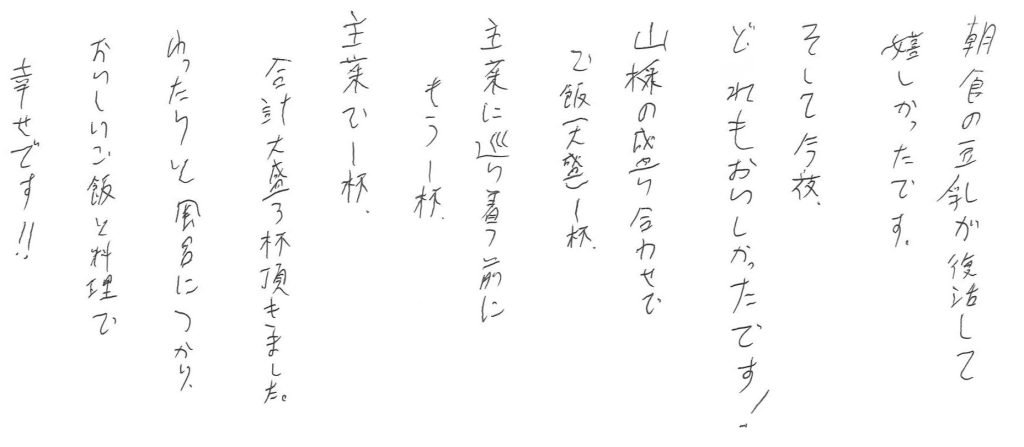 朝食の豆乳が復活して
嬉しかったです。
そして今夜、
どれもおいしかったです!
山様の盛り合わせで
ご飯(大盛)一杯、
主菜に巡り着く前に
もう一杯、
主菜で一杯、
合計大盛3杯頂きました。
ゆったりと風呂につかり、
おいしいご飯と料理で
幸せです!!